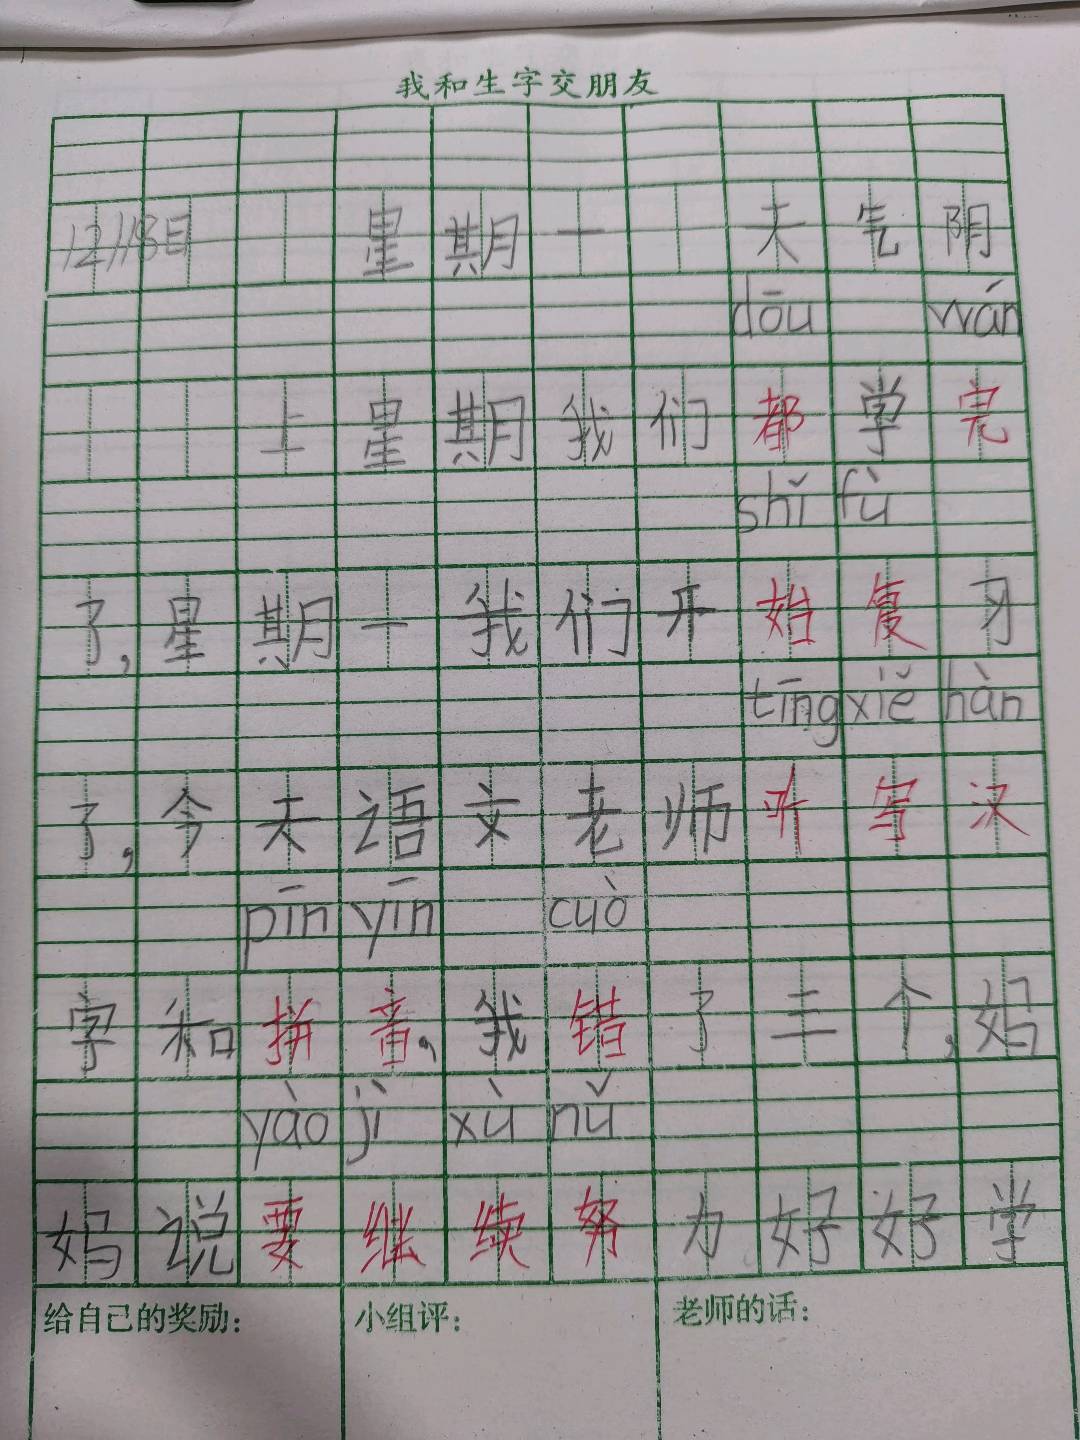 我和生字交朋友
12月18日 星期一 天气阴
dōu wán
上星期我们都学完
shǐ fù
了,星期一我们开始复习
tīng xiě hàn
了,今天语文老师听写汉
pīn yīn cuò
字和拼音,我错了三个,妈
yào jì xù nǔ
妈说要继续努力好好学
给自己的奖励: 小组评: 老师的话: